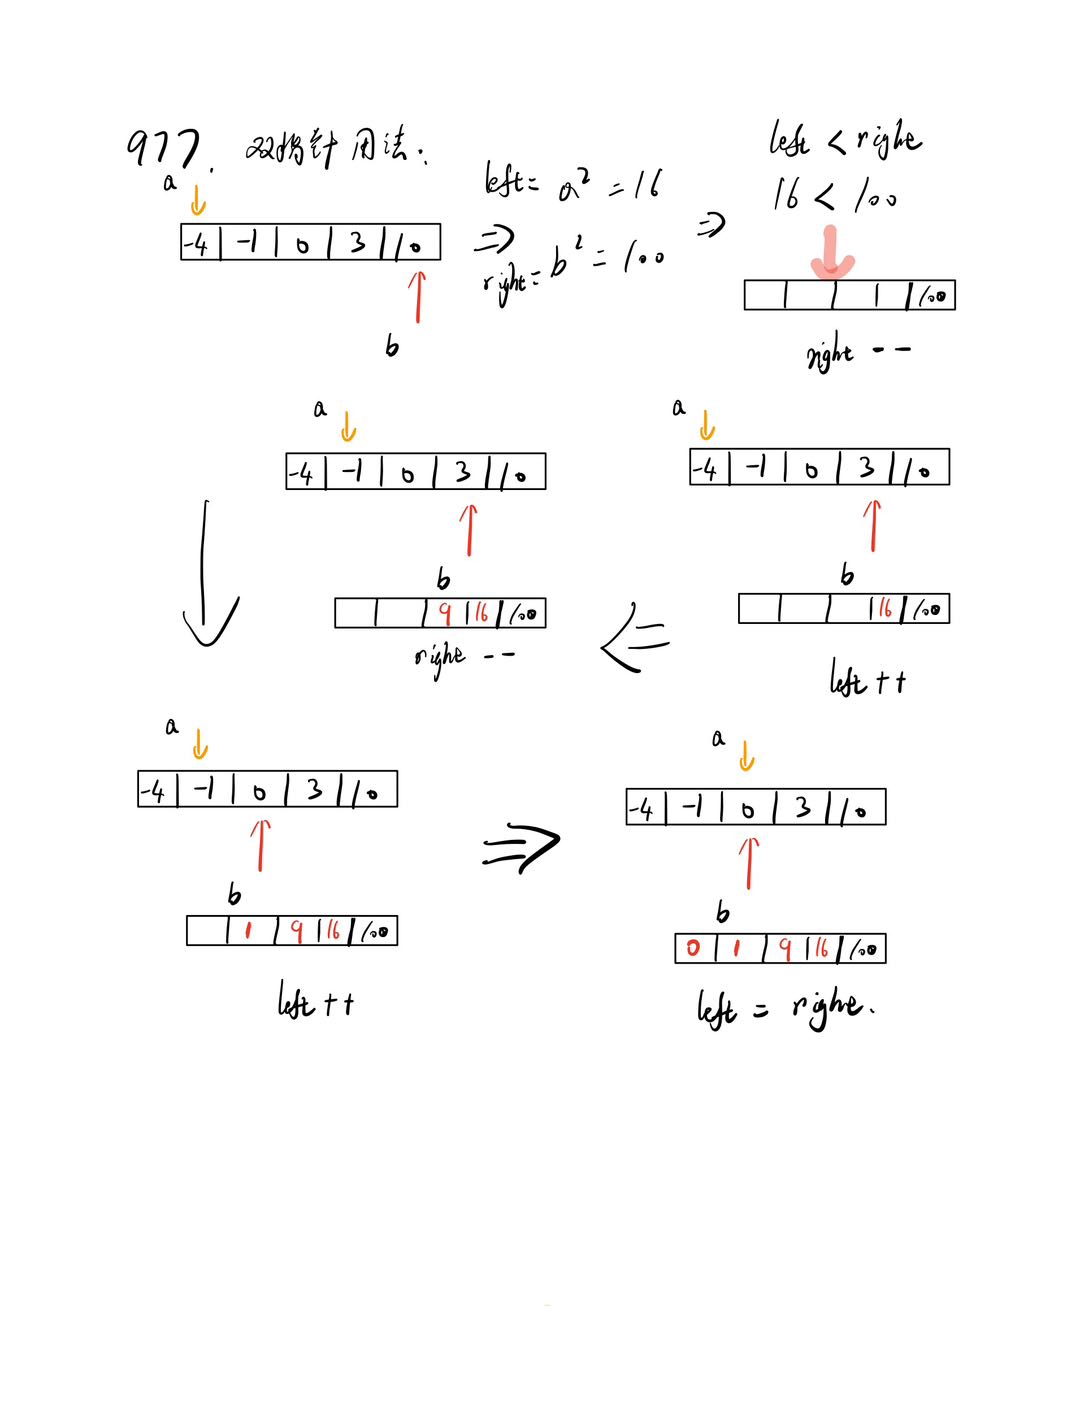 977. 双指针用法.
a
-4 -1 0 3 10
b
left = a² = 16
⇒
right = b² = 100
⇒
left < right
16 < 100
100
right --
a
-4 -1 0 3 10
b
16 100
left ++
a
-4 -1 0 3 10
b
9 16 100
right --
a
-4 -1 0 3 10
b
1 9 16 100
left ++
a
-4 -1 0 3 10
b
0 1 9 16 100
left = right.